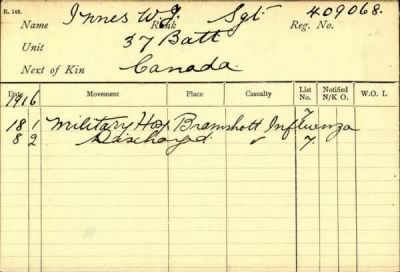 R. 148.
Name Innes W. J. Rank Sgt Reg. No. 409068.
Unit 37 Batt
Next of Kin Canada.
Date Movement Place Casualty List No. Notified N/K O. W.O. L.
1916
18 1 Military Hos Bramshott Influenza 7
8 2 Discharged " 7.